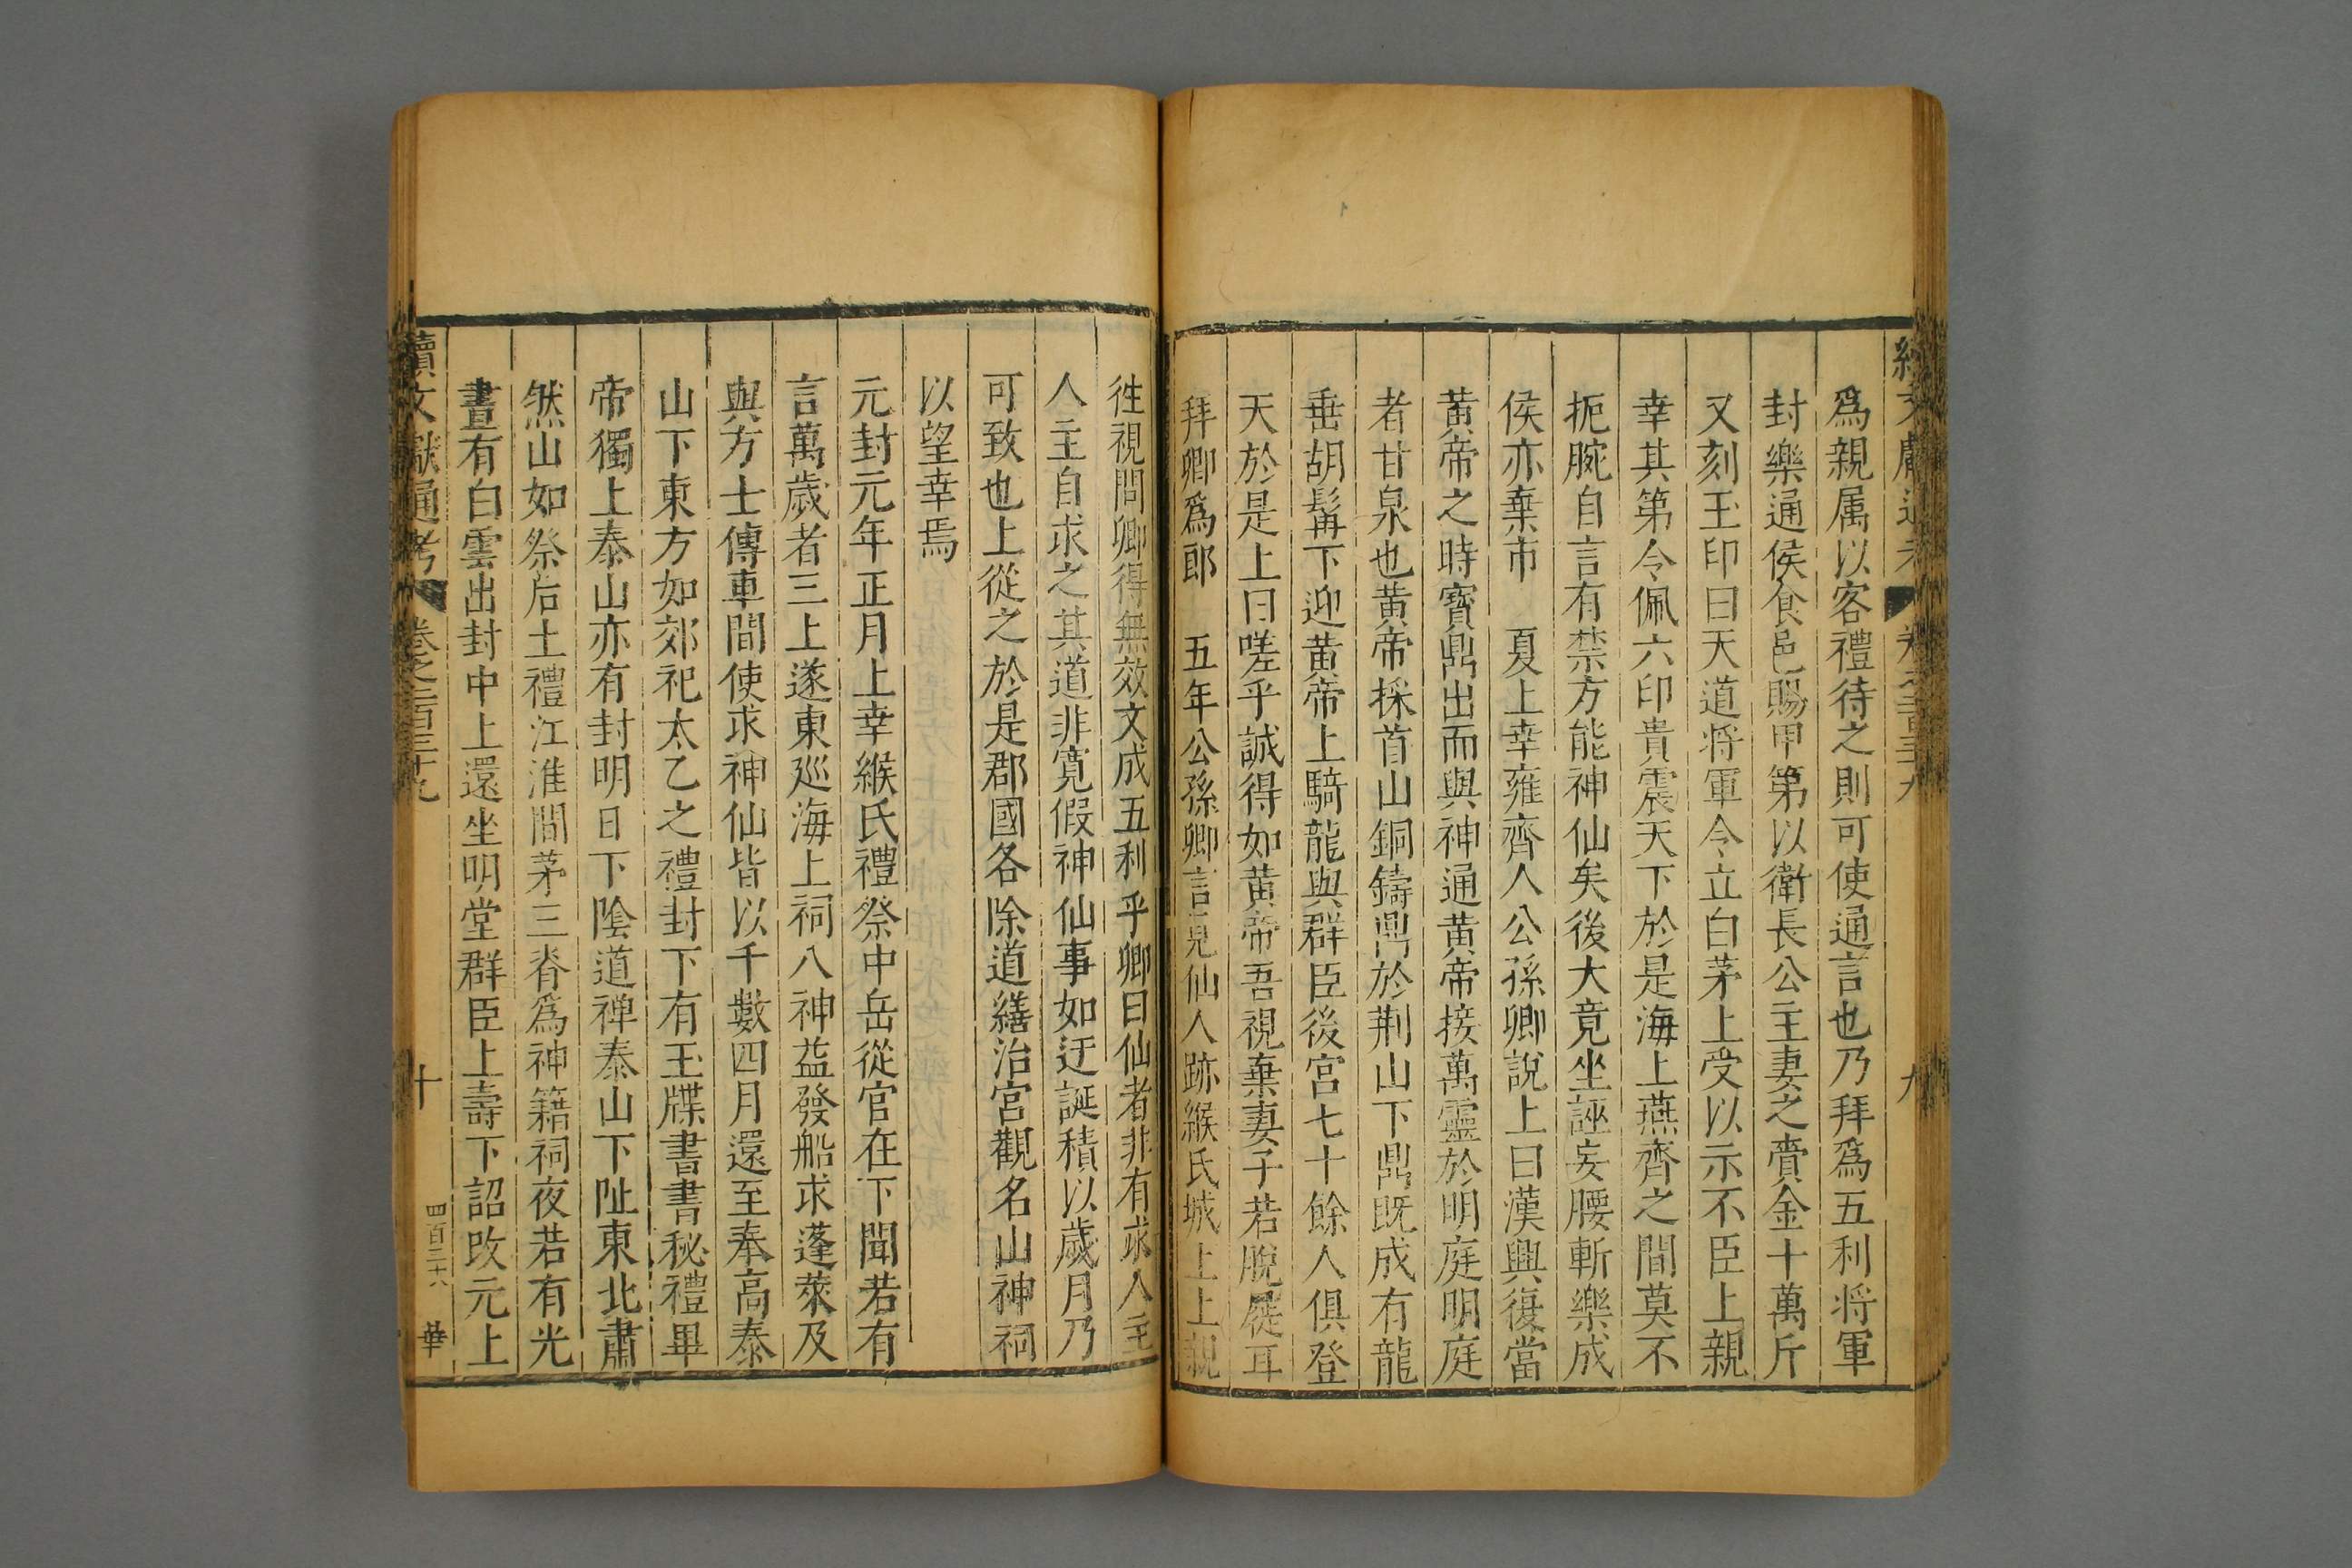 為親属以客禮待之則可使通言也乃拜為五利将軍
封樂通侯食邑賜甲第以衛長公主妻之賫金十萬斤
又刻玉印曰天道将軍令立白茅上受以示不臣上親
幸其第令佩六印貴震天下於是海上燕齊之間莫不
扼腕自言有禁方能神仙矣後大竟坐誣妄腰斬樂成
侯亦棄市 夏上幸雍齊人公孫卿說上曰漢興復當
黄帝之時寶鼎出而與神通黄帝接萬靈於明庭明庭
者甘泉也黄帝採首山銅鑄鼎於荆山下鼎既成有龍
垂胡髯下迎黄帝上騎龍與群臣後宫七十餘人俱登
天於是上曰嗟乎誠得如黄帝吾視棄妻子若脫屣耳
拜卿為郎 五年公孫卿言見仙人跡緱氏城上上親
徃視問卿得無效文成五利乎卿曰仙者非有求人主
人主自求之其道非寬假神仙事如迂誕積以歲月乃
可致也上從之於是郡國各除道繕治宫觀名山神祠
以望幸焉
元封元年正月上幸緱氏禮祭中岳從官在下聞若有
言萬歲者三上遂東廵海上祠八神益發船求蓬萊及
與方士傳車間使求神仙皆以千數四月還至奉高泰
山下東方如郊祀太乙之禮封下有玉牒書書秘禮畢
帝獨上泰山亦有封明日下陰道禅泰山下阯東北肅
然山如祭后土禮江淮間茅三脊為神籍祠夜若有光
晝有白雲出封中上還坐明堂群臣上壽下詔改元上
續文献通考 卷之二百三十九 十 四百二十八 華